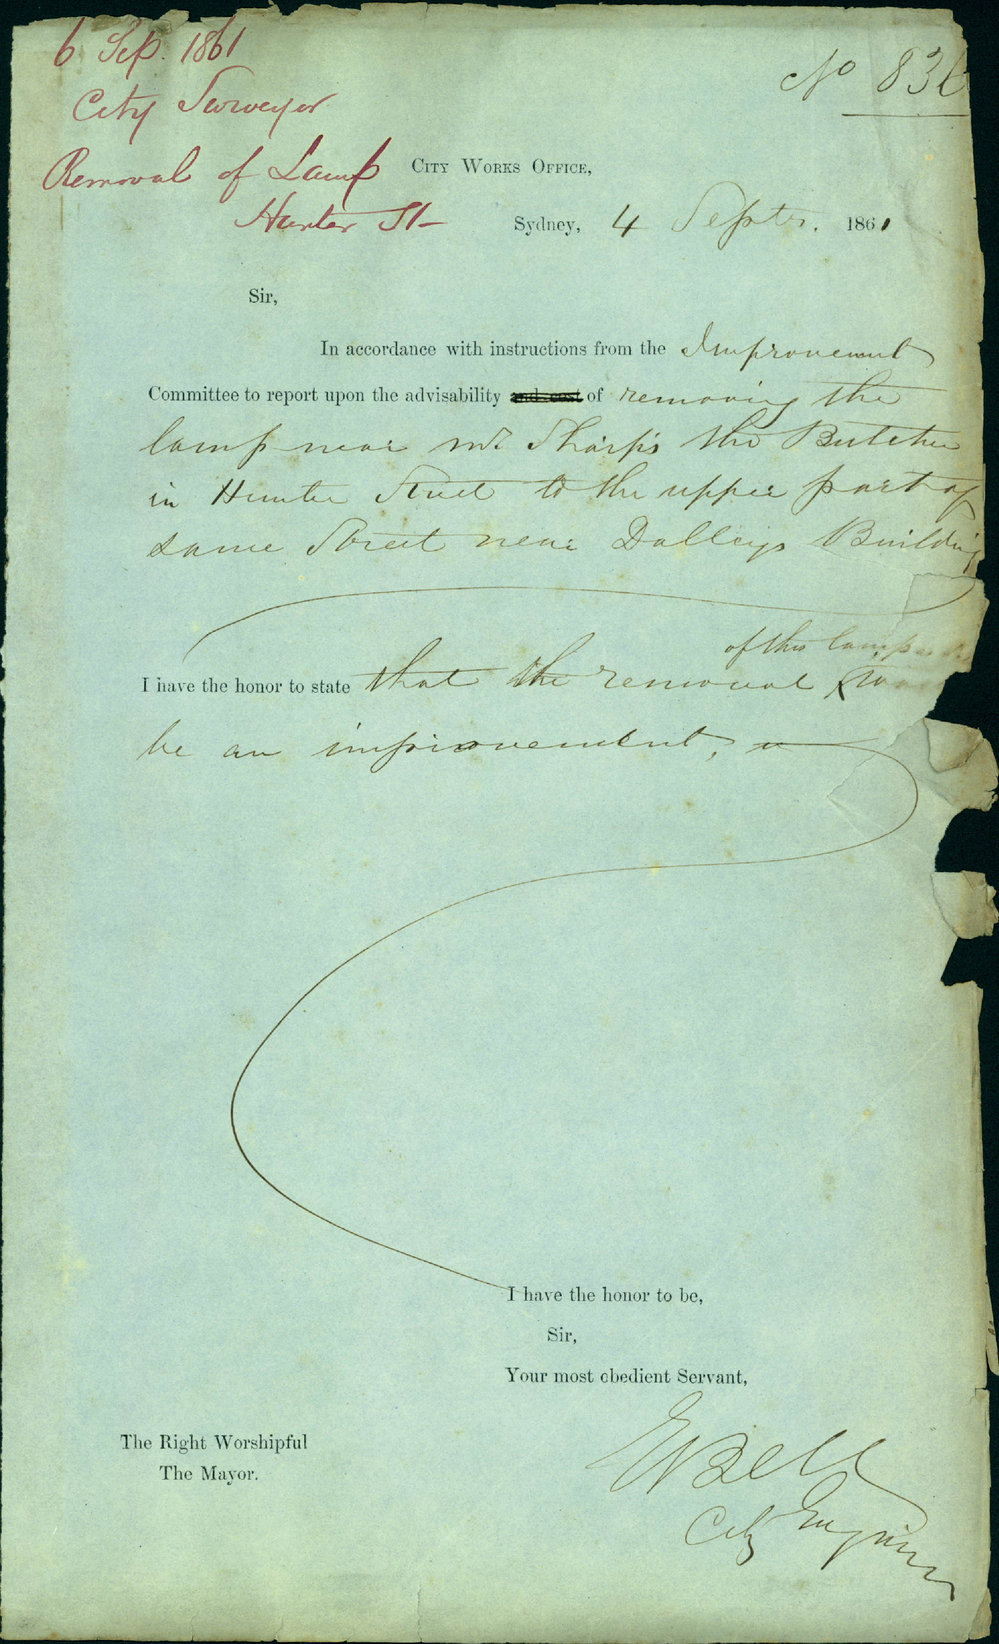 6 Sep. 1861
City Surveyor
Removal of Lamp
Hunter St
No 836
City Works Office,
Sydney, 4 Septr. 1861
Sir,
In accordance with instructions from the Improvement
Committee to report upon the advisability and cost of removing the
lamp near Mr Sharp's the Butcher
in Hunter Street to the upper part of
same Street near Dalleys Building
of this lamp
I have the honor to state that the removal
be an improvement,
I have the honor to be,
Sir,
Your most obedient Servant,
EBell
City Engineer
The Right Worshipful
The Mayor.